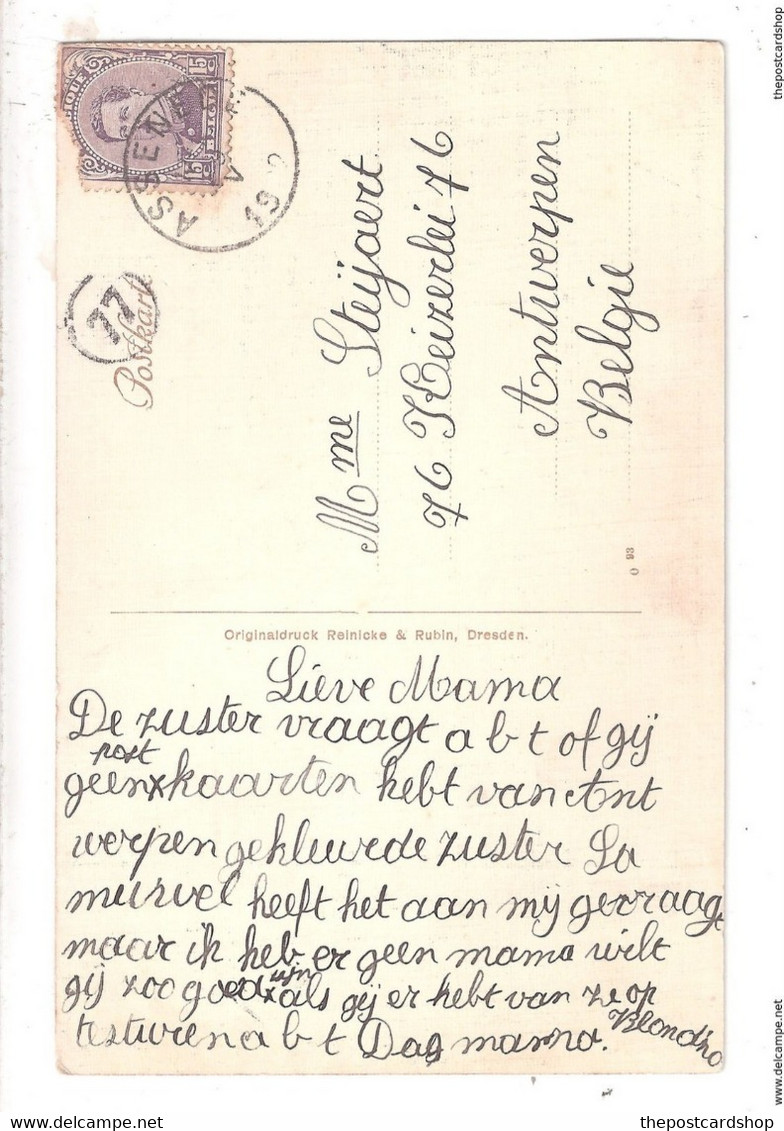 15
15
ASSENE
V
19 2
77
Postkarte
Mme Steijaert
76 Keizerlei 76
Antwerpen
Belgie
0 93
Originaldruck Reinicke & Rubin, Dresden.
Lieve Mama
De zuster vraagt a b t of gij
post
geen x kaarten hebt van Ant
werpen gekleurde zuster La
murvel heeft het aan mij gevraagt
maar ik heb er geen mama wilt
zijn
gij zoo goed x als gij er hebt van ze op
testuren a b t Dag mama. Blondino
thepostcardshop
www.delcampe.net
www.delcampe.net
thepostcardshop